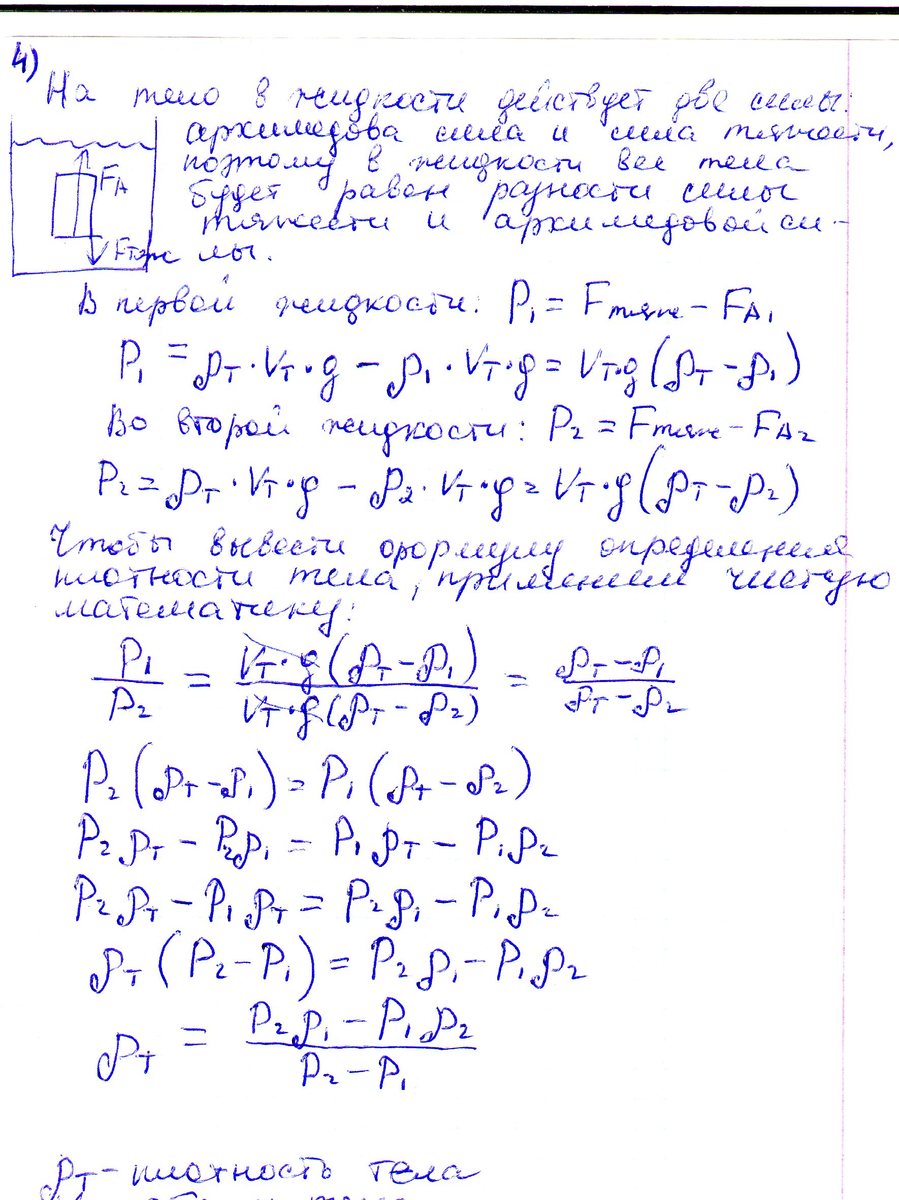 4)
На тело в жидкости действует две силы:
архимедова сила и сила тяжести,
поэтому в жидкости вес тела
будет равен разности силы
тяжести и архимедовой си-
лы.
FA
Fтяж
В первой жидкости: P₁ = Fтяж − FA₁
P₁ = ρт · Vт · g − ρ₁ · Vт · g = Vт g (ρт − ρ₁)
Во второй жидкости: P₂ = Fтяж − FA₂
P₂ = ρт · Vт · g − ρ₂ · Vт · g = Vт · g (ρт − ρ₂)
Чтобы вывести формулу определения
плотности тела, применим чистую
математику:
P₁/P₂ = Vт · g (ρт − ρ₁) / Vт · g (ρт − ρ₂) = ρт − ρ₁ / ρт − ρ₂
P₂ (ρт − ρ₁) = P₁ (ρт − ρ₂)
P₂ ρт − P₂ρ₁ = P₁ ρт − P₁ρ₂
P₂ ρт − P₁ ρт = P₂ ρ₁ − P₁ ρ₂
ρт (P₂ − P₁) = P₂ ρ₁ − P₁ ρ₂
ρт = P₂ρ₁ − P₁ρ₂ / P₂ − P₁
ρт − плотность тела